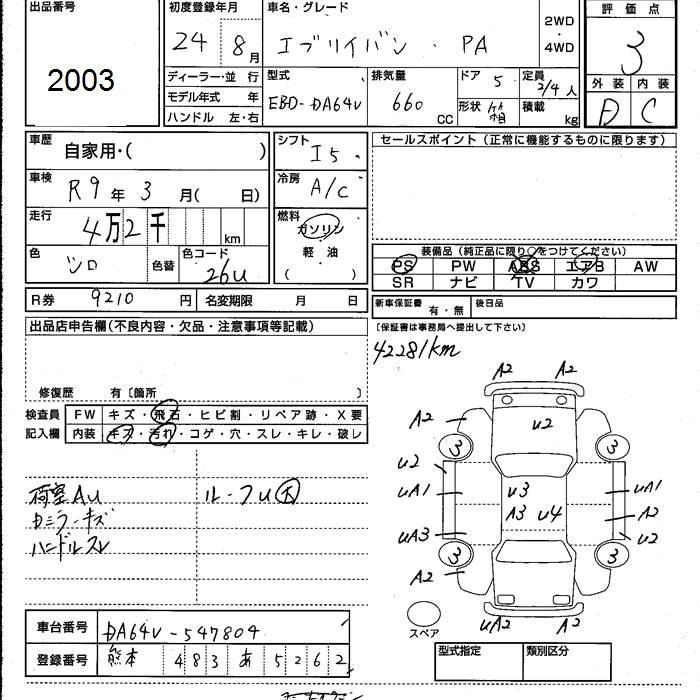 出品番号 初度登録年月 車名・グレード 2WD・4WD 評価点
2003 24 8月 エブリイバン . PA 3
ディーラー・並行 型式 排気量 ドア 5 定員 2/4人 外装 内装
モデル年式 年 EBD-DA64V 660 CC 形状 箱 積載 kg D C
ハンドル 左・右
車歴 自家用・( ) シフト I5 セールスポイント(正常に機能するものに限ります)
車検 R9年3月( 日) 冷房 A/C
走行 4万2千 km 燃料 ガソリン
軽油
( )
色 シロ 色替 色コード 26U 装備品(純正品に限り○をつけてください)
PS PW ABS エアB AW
SR ナビ TV カワ
R券 9210円 名変期限 月 日 新車保証書 有・無 後日品
出品店申告欄(不良内容・欠品・注意事項等記載) (保証書は事務局へ提出して下さい)
42281km
修復歴 有〔箇所 〕
検査員 FW キズ・飛石・ヒビ割・リペア跡・X要
記入欄 内装 キズ・汚れ・コゲ・穴・スレ・キレ・破レ
荷室AU ルーフU大
カミラーキズ
ハンドルスレ
A2 A2
A2 U2
3 3
U2
UA1 U3 UA1
A3 U4 A2
UA3 U2
3 3
A2
UA2 A2
スペア
車台番号 DA64V-547804
登録番号 熊本 483 あ 5262
型式指定 類別区分